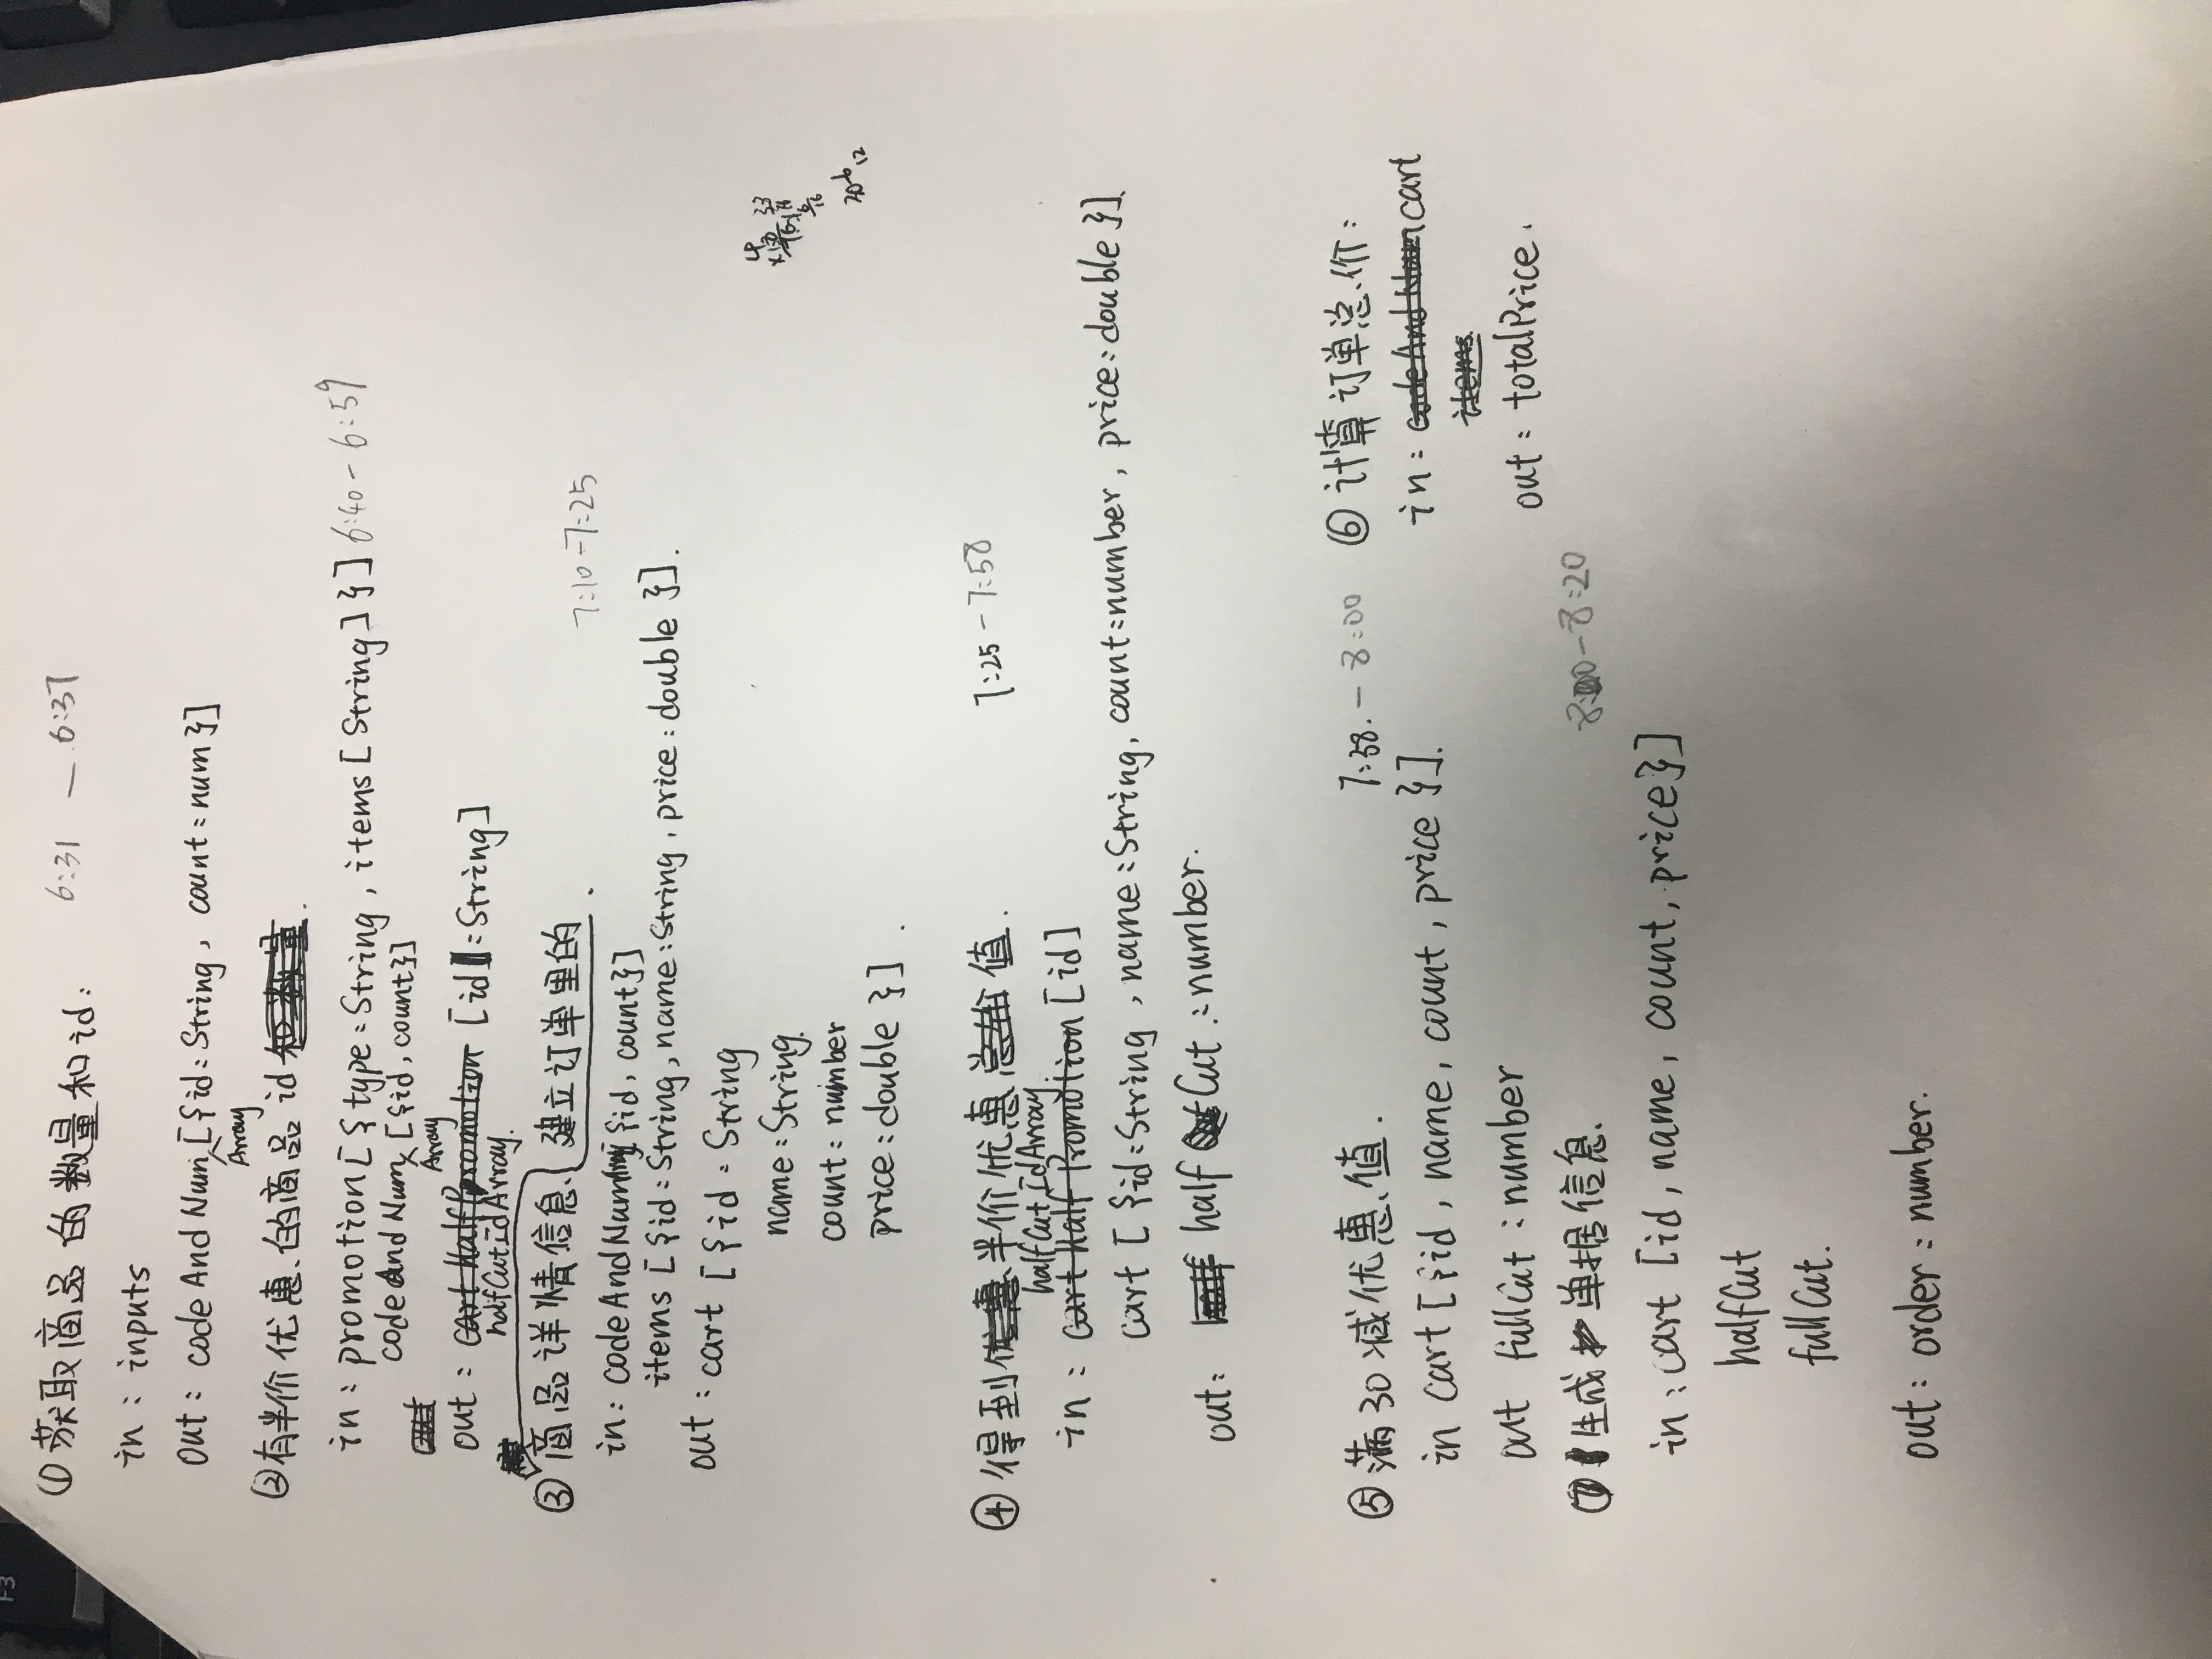 F3
①获取商品的数量和id: 6:31 — 6:37
in : inputs
out : codeAndNum [{id:String, count:num}]
Array
②有半价优惠的商品id和数量.
in : promotion[{type:String, items[String]}] 6:40 - 6:59
codeAndNum [{id, count}]
Array
out
out : cart HalfPromotion [id:String]
halfCutIdArray.
③商品详情信息 建立订单里的. 7:10-7:25
in: codeAndNumArray[{id, count}]
items [{id:String, name:String, price:double}].
out : cart [{id : String
name:String.
count: number
price:double}].
4
33
16
30-6 12
④得到优惠半价优惠总价值. 7:25 - 7:58
halfCutIdArray.
in : cart Half Promotion [id]
cart [{id:String, name:String, count:number, price:double}].
out: half half Cut : number.
⑤满30减优惠值. 7:38. - 8:00
in cart[{id, name, count, price}].
out fullCut : number
⑥计算订单总价:
in : codeAndNum cart
items.
out : totalPrice.
⑦生成单据信息. 8:00-8:20
in : cart [id, name, count, price}]
halfCut
fullCut.
out : order : number.